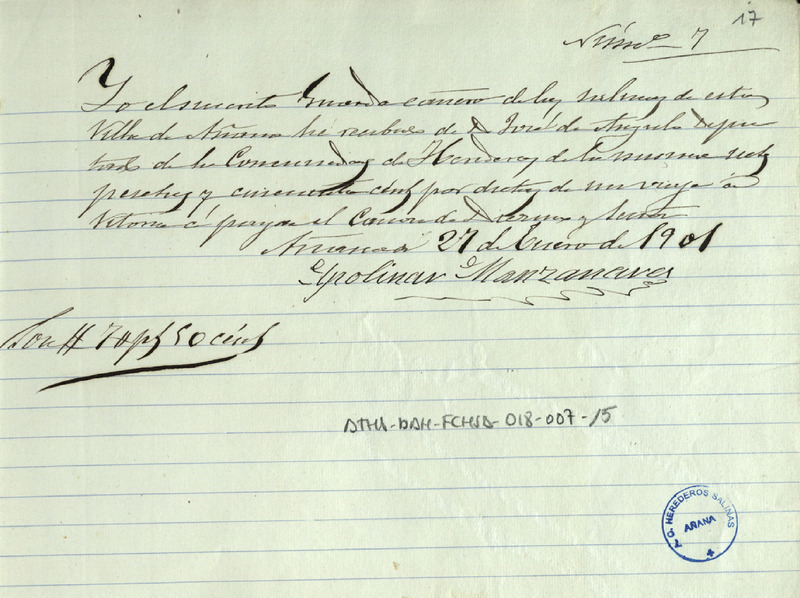 17
Núm.º 7
Yo el suscrito Guarda cañero de las salinas de esta
Villa de Añana he recibido de D José de Angulo Depositario
de la Comunidad de Herederos de la misma siete
pesetas y cincuenta cént por dietas de un viaje á
Vitoria á pagar el Canon de
Añana 27 de Enero de 1901
Apolinar Manzanares
Son # 7 pts 50 cént
ATHA-DAH-FCHSA-018-007-15
A. G. HEREDEROS SALINAS
AÑANA